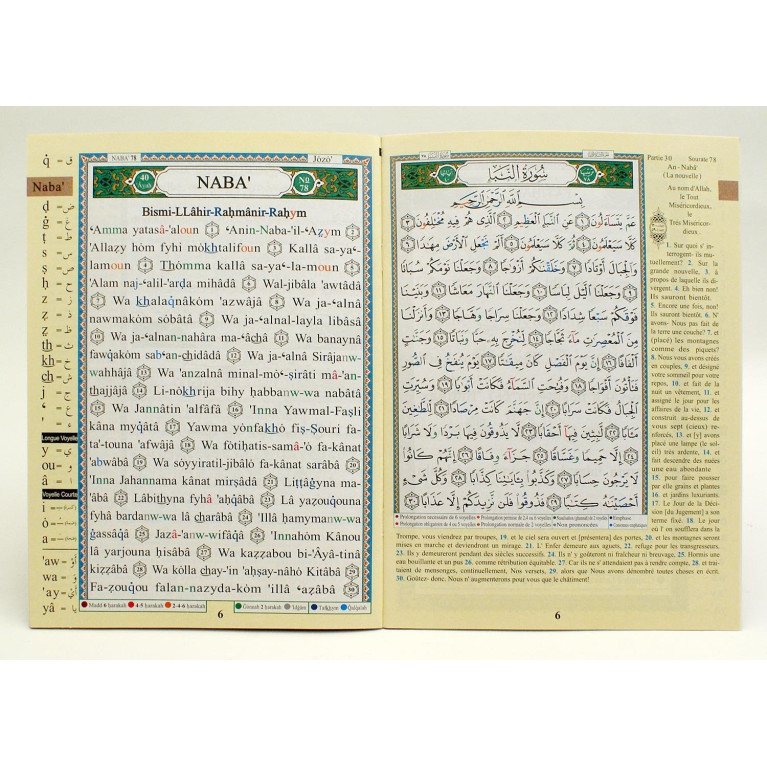 NABA' 78
Jôzô'
40
Ayah
NABA'
No
78
Bismi-LLâhir-Raḥmânir-Raḥym
ʿAmma yatasâ-'aloun 1 ʿAnin-Naba-'il-ʿAẓym 2
'Allaẓy hòm fyhi mókhtalifoun 3 Kallâ sa-yaʿ-
lamoun 4 Thómma kallâ sa-yaʿ-la-moun 5
'Alam naj-ʿalil-'arḍa mihâdâ 6 Wal-jibâla 'awtâdâ
7 Wa khalaqnâkòm 'azwâjâ 8 Wa ja-ʿalnâ
nawmakòm sòbâtâ 9 Wa ja-ʿalnal-layla libâsâ
10 Wa ja-ʿalnan-nahâra ma-ʿâchâ 11 Wa banaynâ
fawqakòm sabʿan-chidâdâ 12 Wa ja-ʿalnâ Sirâjanw-
wahhâjâ 13 Wa 'anzalnâ minal-móʿ-ṣirâti mâ-'an-
thajjâjâ 14 Li-nòkhrija bihy ḥabban-wa nabâtâ
15 Wa Jannâtin 'alfâfâ 16 'Inna Yawmal-Faṣli
kâna myqâtâ 17 Yawma yònfakhò fiṣ-Ṣouri fa-
ta'-touna 'afwâjâ 18 Wa fòtiḥatis-samâ-'ò fa-kânat
'abwâbâ 19 Wa sòyyiratil-jibâlò fa-kânat sarâbâ 20
'Inna Jahannama kânat mirṣâdâ 21 Liṭṭâġyna ma-
'âbâ 22 Lâbithyna fyhâ 'aḥqâbâ 23 Lâ yaẓouqouna
fyhâ bardanw-wa lâ charâbâ 24 'Illâ ḥamymanw-wa
ġassâqâ 25 Jazâ-'anw-wifâqâ 26 'Innahòm Kânou
lâ yarjouna ḥisâbâ 27 Wa kaẓẓabou bi-'Âyâ-tinâ
kiẓẓâbâ 28 Wa kòlla chay-'in 'aḥṣay-nâhò Kitâbâ 29
Fa-ẓouqou falan-nazyda-kòm 'illâ ʿaẓâbâ 30
Madd 6 ḥarakah 4-5 ḥarakah 2-4-6 ḥarakah Ġonnah 2 ḥarakah 'Idġâm Tafkhym Qalqalah
6
q̇ = ق
Naba'
ḍ = ض
ġ = غ
ṭ = ط
s = س
ṣ = ص
ḥ = ح
z = ز
ẓ = ذ
ẓ = ظ
th = ث
kh = خ
ch = ش
j = ج
ʿ = ع
' = ء
Longue Voyelle
y = ي
ou = و
â = ا
Voyelle Courte
i =
ò =
a =
'aw = أو
wa = و
'ay = أي
yâ = يا
سُورَةُ النَّبَإِ
بِسْمِ اللَّهِ الرَّحْمَٰنِ الرَّحِيمِ
عَمَّ يَتَسَاءَلُونَ ١ عَنِ النَّبَإِ الْعَظِيمِ ٢ الَّذِي هُمْ فِيهِ مُخْتَلِفُونَ ٣
كَلَّا سَيَعْلَمُونَ ٤ ثُمَّ كَلَّا سَيَعْلَمُونَ ٥ أَلَمْ نَجْعَلِ الْأَرْضَ مِهَادًا ٦
وَالْجِبَالَ أَوْتَادًا ٧ وَخَلَقْنَاكُمْ أَزْوَاجًا ٨ وَجَعَلْنَا نَوْمَكُمْ سُبَاتًا
٩ وَجَعَلْنَا اللَّيْلَ لِبَاسًا ١٠ وَجَعَلْنَا النَّهَارَ مَعَاشًا ١١ وَبَنَيْنَا
فَوْقَكُمْ سَبْعًا شِدَادًا ١٢ وَجَعَلْنَا سِرَاجًا وَهَّاجًا ١٣ وَأَنْزَلْنَا
مِنَ الْمُعْصِرَاتِ مَاءً ثَجَّاجًا ١٤ لِنُخْرِجَ بِهِ حَبًّا وَنَبَاتًا ١٥ وَجَنَّاتٍ
أَلْفَافًا ١٦ إِنَّ يَوْمَ الْفَصْلِ كَانَ مِيقَاتًا ١٧ يَوْمَ يُنْفَخُ فِي الصُّورِ
فَتَأْتُونَ أَفْوَاجًا ١٨ وَفُتِحَتِ السَّمَاءُ فَكَانَتْ أَبْوَابًا ١٩ وَسُيِّرَتِ
الْجِبَالُ فَكَانَتْ سَرَابًا ٢٠ إِنَّ جَهَنَّمَ كَانَتْ مِرْصَادًا ٢١ لِلطَّاغِينَ
مَآبًا ٢٢ لَابِثِينَ فِيهَا أَحْقَابًا ٢٣ لَا يَذُوقُونَ فِيهَا بَرْدًا وَلَا شَرَابًا
٢٤ إِلَّا حَمِيمًا وَغَسَّاقًا ٢٥ جَزَاءً وِفَاقًا ٢٦ إِنَّهُمْ كَانُوا
لَا يَرْجُونَ حِسَابًا ٢٧ وَكَذَّبُوا بِآيَاتِنَا كِذَّابًا ٢٨ وَكُلَّ شَيْءٍ
أَحْصَيْنَاهُ كِتَابًا ٢٩ فَذُوقُوا فَلَنْ نَزِيدَكُمْ إِلَّا عَذَابًا ٣٠
Partie 30 Sourate 78
An - Nabâ'
(La nouvelle)
Au nom d'Allah,
le Tout
Miséricordieux,
le
Très Miséricor-
dieux.
1. Sur quoi s' in-
terrogent- ils mu-
tuellement? 2. Sur la
grande nouvelle, 3. à
propos de laquelle ils di-
vergent. 4. Eh bien non!
Ils sauront bientôt.
5. Encore une fois, non!
Ils sauront bientôt. 6. N'
avons- Nous pas fait de
la terre une couche? 7. et
(placé) les montagnes
comme des piquets?
8. Nous vous avons créés
en couples, 9. et désigné
votre sommeil pour votre
repos, 10. et fait de la
nuit un vêtement, 11. et
assigné le jour pour les
affaires de la vie, 12. et
construit au-dessus de
vous sept (cieux) ren-
forcés, 13. et [y] avons
placé une lampe (le so-
leil) très ardente, 14. et
fait descendre des nuées
une eau abondante
15. pour faire pousser
par elle grains et plantes
16. et jardins luxuriants.
17. Le Jour de la Déci-
sion [du Jugement] a son
terme fixé. 18. Le jour
où l' on soufflera dans la
Trompe, vous viendrez par troupes, 19. et le ciel sera ouvert et [présentera] des portes, 20. et les montagnes seront
mises en marche et deviendront un mirage. 21. L' Enfer demeure aux aguets, 22. refuge pour les transgresseurs.
23. Ils y demeureront pendant des siècles successifs. 24. Ils n' y goûteront ni fraîcheur ni breuvage, 25. Hormis une
eau bouillante et un pus 26. comme rétribution équitable. 27. Car ils ne s' attendaient pas à rendre compte, 28. et trai-
taient de mensonges, continuellement, Nos versets, 29. alors que Nous avons dénombré toutes choses en écrit.
30. Goûtez- donc. Nous n' augmenterons pour vous que le châtiment!
6